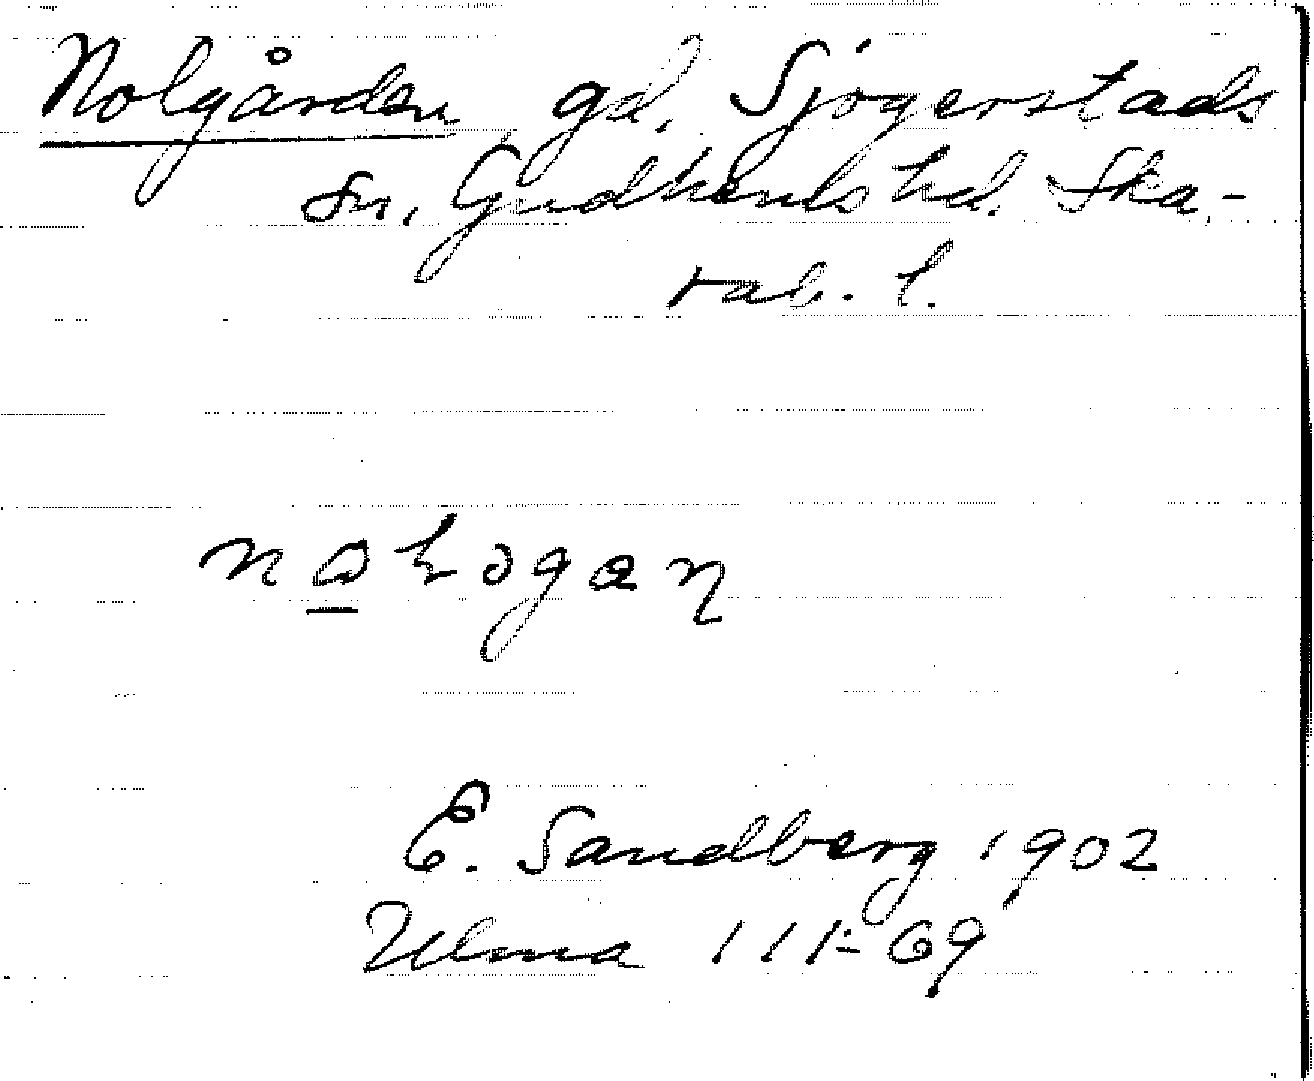 Nolgården gd. Sjögerstads
sn. Gudhems hd. Ska-
rab. l.
E. Sandberg 1902
Ulma 111:69